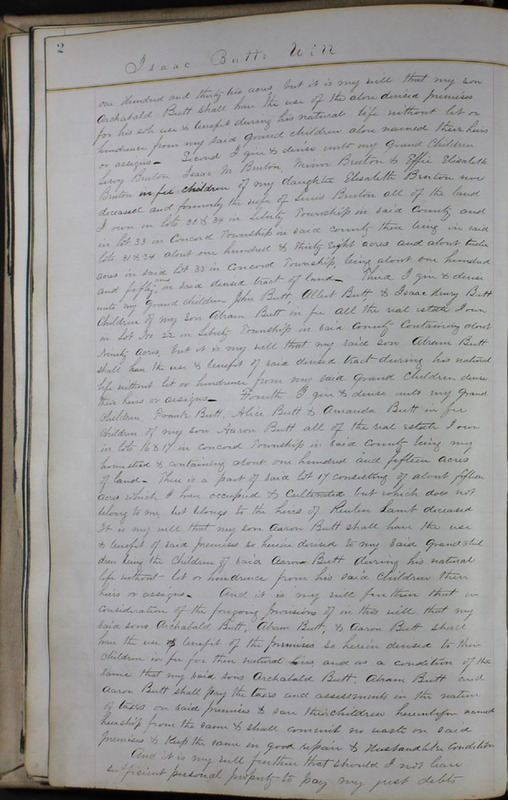 2
Isaac Butts Will
one hundred and thirty six acres but it is my will that my son
Archabald Butt shall have the use of the above devised premises
for his sole use & benefit during his natural life without let or
hindrance from my said grand children above named their heirs
or assigns - Second I give & devise unto my Grand Children
Isaac M. Bruton, & Effie Elisabeth
Bruton in fee children of my daughter Elisabeth Bruton now
deceased and formerly the wife of Bruton all of the land
I own in lots 31 & 34 in Liberty Township in said County and
in lot 33 in Concord Township in said county there being in said
lots 31 & 34 about one hundred & thirty eight acres and about twelve
acres in said lot 33 in Concord Township, being about one hundred
and fifty acres in said devised tract of land - Third I give & devise
unto my grand children John Butt, Albert Butt & Isaac Henry Butt
Children of my son Abram Butt in fee all the real estate I own
in Lot No 22 in Liberty Township in said County Containing about
Ninety acres, but it is my will that my said son Abram Butt
shall have the use & benefit of said devised tract during his natural
life without let or hindrance from my said Grand Children devisees
their heirs or assigns - Fourth I give & devise unto my Grand
children, Frank Butt, Alice Butt & Amanda Butt in fee
Children of my son Aaron Butt all of the real estate I own
in lots 16 & 17 in Concord Township in said County being my
homestead & containing about one hundred and fifteen acres
of land - There is a part of said lot 17 consisting of about fifteen
acres which I have occupied & Cultivated but which does not
belong to me but belongs to the heirs of Reuben Lamb deceased
It is my will that my son Aaron Butt shall have the use
& benefit of said premises so herein devised to my said Grandchil
dren being the Children of said Aaron Butt during his natural
life without let or hindrance from his said Children their
heirs or assigns - And it is my will further that in
consideration of the foregoing provisions of in this will that my
said sons Archabald Butt, Abram Butt, & Aaron Butt shall
have the use & benefit of the premises so herein devised to their
children in fee for their natural lives, and as a condition of the
same that my said sons Archabald Butt, Abram Butt and
Aaron Butt shall pay the taxes and assessments in the nature
of taxes on said premises & save their children hereinbefore named
harmless from the same & shall commit no waste on said
premises & Keep the same in good repair & Husbandlike Condition
And it is my will further that should I not have
sufficient personal property to pay my just debts